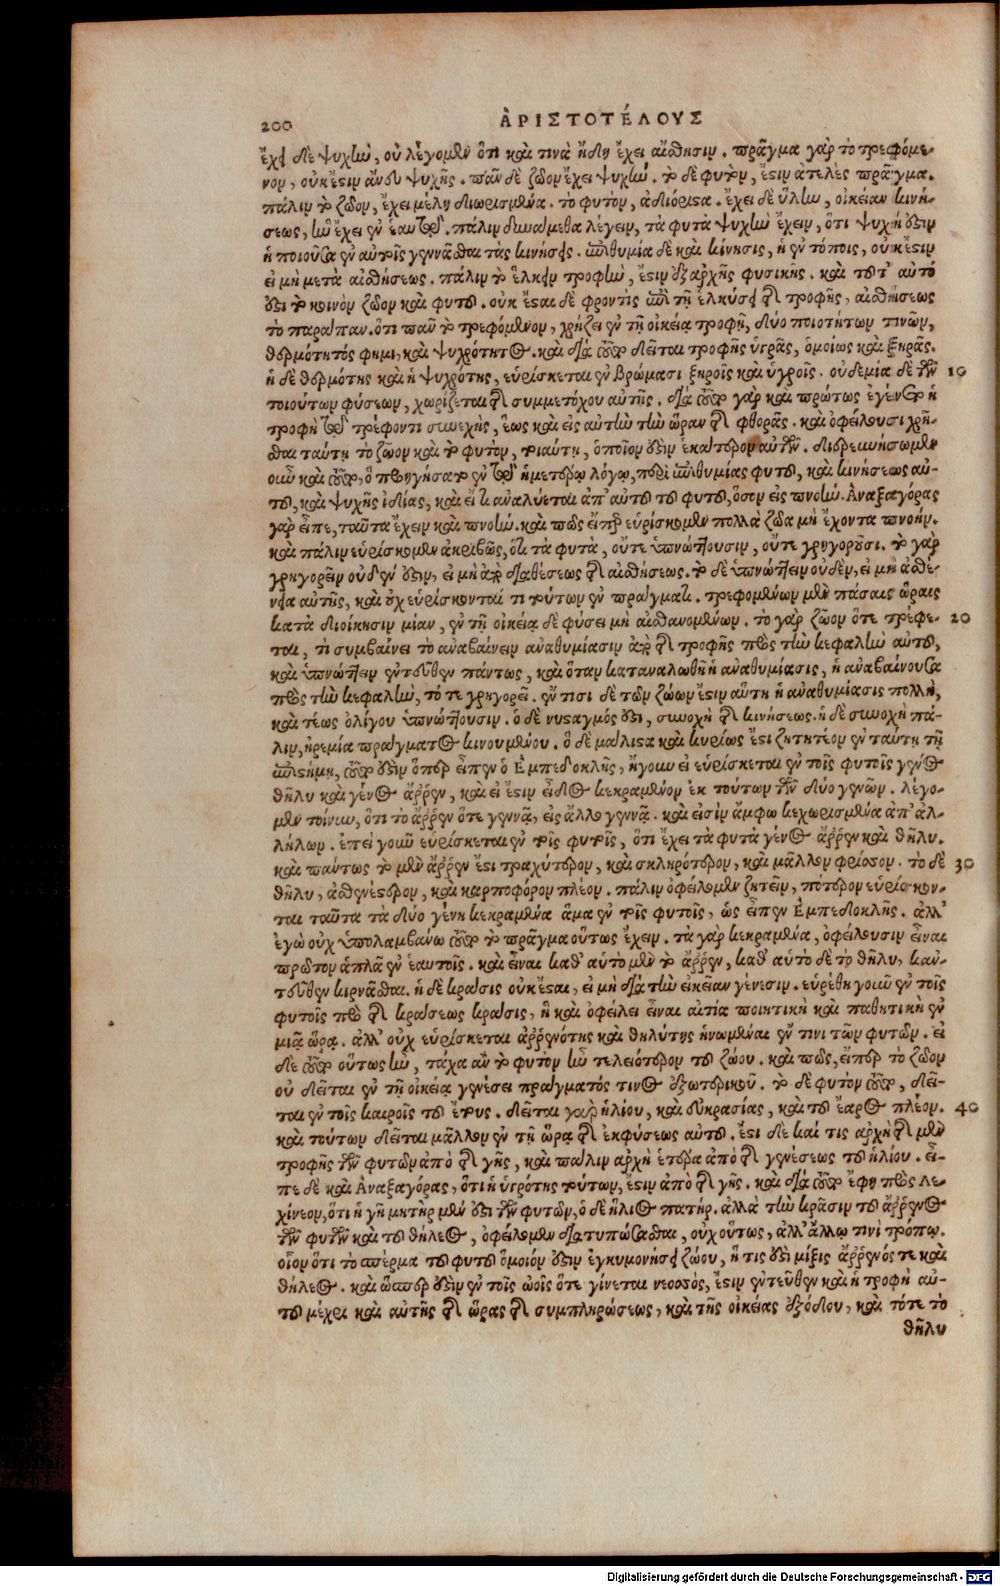 200 ἈΡΙΣΤΟΤΈΛΟΥΣ
ἔχει δὲ ψυχὴν, οὐ λέγομεν ὅτι καὶ τινὰ ἤδη ἔχει αἴσθησιν. πρᾶγμα γὰρ τὸ τρεφόμε-
νον, οὐκ ἔστιν ἄνευ ψυχῆς. πᾶν δὲ ζῶον ἔχει ψυχήν. τὸ δὲ φυτὸν, ἔστιν ἀτελὲς πρᾶγμα.
πάλιν τὸ ζῶον, ἔχει μέλη διωρισμένα. τὸ φυτὸν, ἀδιόριστα. ἔχει δὲ ὕλην, οἰκείαν κινή-
σεως, ἣν ἔχει ἐν ἑαυτῷ. πάλιν δυνάμεθα λέγειν, τὰ φυτὰ ψυχὴν ἔχειν, ὅτι ψυχή ἐστιν
ἡ ποιοῦσα ἐν αὐτοῖς γεννᾶσθαι τὰς κινήσεις. ἐπιθυμία δὲ καὶ κίνησις, ἡ ἐν τόποις, οὐκ ἔστιν
εἰ μὴ μετὰ αἰσθήσεως. πάλιν τὸ ἕλκειν τροφὴν, ἔστιν ἐξ ἀρχῆς φυσικῆς. καὶ τοῦτ' αὐτό
ἐστι τὸ κοινὸν ζώου καὶ φυτοῦ. οὐκ ἔσται δὲ φροντὶς ἐπὶ τῇ ἑλκύσει τῆς τροφῆς, αἰσθήσεως
τὸ παράπαν. ὅτι πᾶν τὸ τρεφόμενον, χρῄζει ἐν τῇ οἰκείᾳ τροφῇ, δύο ποιοτήτων τινῶν,
θερμότητός φημι, καὶ ψυχρότητος. καὶ διὰ τοῦτο δεῖται τροφῆς ὑγρᾶς, ὁμοίως καὶ ξηρᾶς.
ἡ δὲ θερμότης καὶ ἡ ψυχρότης, εὑρίσκεται ἐν βρώμασι ξηροῖς καὶ ὑγροῖς. οὐδεμία δὲ τῶν 10
τοιούτων φύσεων, χωρίζεται τῆς συμμετόχου αὐτῆς. διὰ τοῦτο γὰρ καὶ πρώτως ἐγένετο ἡ
τροφὴ τῷ τρέφοντι συνεχὴς, ἕως καὶ εἰς αὐτὴν τὴν ὥραν τῆς φθορᾶς. καὶ ὀφείλουσι χρῆ-
σθαι ταύτῃ τὸ ζῶον καὶ τὸ φυτὸν, τοιαύτῃ, ὁποῖόν ἐστιν ἑκάτερον αὐτῶν. διερευνήσωμεν
οὖν καὶ τοῦτο, ὃ προηγήσατο ἐν τῷ ἡμετέρῳ λόγῳ, περὶ ἐπιθυμίας φυτοῦ, καὶ κινήσεως αὐ-
τοῦ, καὶ ψυχῆς ἰδίας, καὶ εἴ τι ἀναλύεται ἀπ' αὐτοῦ τοῦ φυτοῦ, ὅσον εἰς πνοήν. Ἀναξαγόρας
γὰρ εἶπε, ταῦτα ἔχειν καὶ πνοήν. καὶ πῶς εἴπερ εὑρίσκομεν πολλὰ ζῶα μὴ ἔχοντα πνοήν.
καὶ πάλιν εὑρίσκομεν ἀκριβῶς, ὅτι τὰ φυτὰ, οὔτε ὑπνώττουσιν, οὔτε γρηγοροῦσι. τὸ γὰρ
γρηγορεῖν οὐδέν ἐστιν, εἰ μὴ ἀπὸ διαθέσεως τῆς αἰσθήσεως. τὸ δὲ ὑπνώττειν οὐδὲν, εἰ μὴ ἀσθέ-
νεια αὐτῆς, καὶ οὐχ εὑρίσκονταί τι τούτων ἐν πράγματι. τρεφομένων μὲν πάσαις ὥραις
κατὰ διοίκησιν μίαν, ἐν τῇ οἰκείᾳ δὲ φύσει μὴ αἰσθανομένων. τὸ γὰρ ζῶον ὅτε τρέφε- 20
ται, τι συμβαίνει τὸ ἀναβαίνειν ἀναθυμίασιν ἀπὸ τῆς τροφῆς πρὸς τὴν κεφαλὴν αὐτοῦ,
καὶ ὑπνώττειν ἐντεῦθεν πάντως, καὶ ὅταν καταναλωθῇ ἡ ἀναθυμίασις, ἡ ἀναβαίνουσα
πρὸς τὴν κεφαλὴν, τό τε γρηγορεῖ. ἔν τισι δὲ τῶν ζώων ἔστιν αὕτη ἡ ἀναθυμίασις πολλὴ,
καὶ τέως ὀλίγου ὑπνώττουσιν. ὁ δὲ νυσταγμός ἐστι, συνοχὴ τῆς κινήσεως. ἡ δὲ συνοχὴ πά-
λιν, ἠρεμία πράγματος κινουμένου. ὃ δὲ μάλιστα καὶ κυρίως ἔστι ζητητέον ἐν ταύτῃ τῇ
ἐπιστήμῃ, τοῦτό ἐστιν ὅπερ εἶπεν ὁ Ἐμπεδοκλῆς, ἤγουν εἰ εὑρίσκεται ἐν τοῖς φυτοῖς γένος
θῆλυ καὶ γένος ἄῤῥεν, καὶ εἰ ἔστιν εἶδος κεκραμένον ἐκ τούτων τῶν δύο γενῶν. λέγο-
μεν τοίνυν, ὅτι τὸ ἄῤῥεν ὅτε γεννᾷ, εἰς ἄλλο γεννᾷ. καὶ εἰσὶν ἄμφω κεχωρισμένα ἀπ' ἀλ-
λήλων. ἐπεὶ γοῦν εὑρίσκεται ἐν τοῖς φυτοῖς, ὅτι ἔχει τὰ φυτὰ γένος ἄῤῥεν καὶ θῆλυ.
καὶ πάντως τὸ μὲν ἄῤῥεν ἔστι τραχύτερον, καὶ σκληρότερον, καὶ μᾶλλον φρίσσον. τὸ δὲ 30
θῆλυ, ἀσθενέστερον, καὶ καρποφόρον πλέον. πάλιν ὀφείλομεν ζητεῖν, πότερον εὑρίσκον-
ται ταῦτα τὰ δύο γένη κεκραμένα ἅμα ἐν τοῖς φυτοῖς, ὡς εἶπεν Ἐμπεδοκλῆς. ἀλλ'
ἐγὼ οὐχ ὑπολαμβάνω τοῦτο τὸ πρᾶγμα οὕτως ἔχειν. τὰ γὰρ κεκραμένα, ὀφείλουσιν εἶναι
πρῶτον ἁπλᾶ ἐν ἑαυτοῖς. καὶ εἶναι καθ' αὑτὸ μὲν τὸ ἄῤῥεν, καθ' αὑτὸ δὲ τὸ θῆλυ, κἀν-
τεῦθεν κιρνᾶσθαι. ἡ δὲ κρᾶσις οὐκ ἔσται, εἰ μὴ διὰ τὴν ἐκείαν γένεσιν. εὑρέθη γοῦν ἐν τοῖς
φυτοῖς πρὸ τῆς κράσεως κρᾶσις, ἣ καὶ ὀφείλει εἶναι αἰτία ποιητικὴ καὶ παθητικὴ ἐν
μιᾷ ὥρᾳ. ἀλλ' οὐχ εὑρίσκεται ἀῤῥενότης καὶ θηλύτης ἡνωμέναι ἔν τινι τῶν φυτῶν. εἰ
δὲ τοῦτο οὕτως ἦν, τάχα ἂν τὸ φυτὸν ἦν τελειότερον τοῦ ζώου. καὶ πῶς, εἴπερ τὸ ζῶον
οὐ δεῖται ἐν τῇ οἰκείᾳ γενέσει πράγματός τινος ἐξωτερικοῦ. τὸ δὲ φυτὸν τοῦτο, δεῖ-
ται ἐν τοῖς καιροῖς τοῦ ἔτους. δεῖται γὰρ ἡλίου, καὶ εὐκρασίας, καὶ τοῦ ἔαρος πλέον. 40
καὶ τούτων δεῖται μᾶλλον ἐν τῇ ὥρᾳ τῆς ἐκφύσεως αὐτοῦ. ἔστι δὲ καί τις ἀρχὴ τῆς μὲν
τροφῆς τῶν φυτῶν ἀπὸ τῆς γῆς, καὶ πάλιν ἀρχὴ ἑτέρα ἀπὸ τῆς γενέσεως τοῦ ἡλίου. εἶ-
πε δὲ καὶ Ἀναξαγόρας, ὅτι ἡ ὑγρότης τούτων, ἔστιν ἀπὸ τῆς γῆς. καὶ διὰ τοῦτο ἔφη πρὸς Λε-
χίνεον, ὅτι ἡ γῆ μητὴρ μέν ἐστι τῶν φυτῶν, ὁ δὲ ἥλιος πατήρ. ἀλλὰ τὴν κρᾶσιν τοῦ ἄῤῥενος
τῶν φυτῶν καὶ τοῦ θήλεος, ὀφείλομεν διατυπώσασθαι, οὐχ οὕτως, ἀλλ' ἄλλῳ τινὶ τρόπῳ.
οἷον ὅτι τὸ σπέρμα τοῦ φυτοῦ ὅμοιόν ἐστιν ἐγκυμονήσει ζώου, ἥ τις ἐστὶ μίξις ἄῤῥενός τε καὶ
θήλεος. καὶ ὥσπερ ἐστὶν ἐν τοῖς ὠοῖς ὅτε γίνεται νεοσσὸς, ἔστιν ἐντεῦθεν καὶ ἡ τροφὴ αὐ-
τοῦ μέχρι καὶ αὐτῆς τῆς ὥρας τῆς συμπληρώσεως, καὶ τῆς οἰκείας ἐξόδου, καὶ τότε τὸ
θῆλυ
Digitalisierung gefördert durch die Deutsche Forschungsgemeinschaft - DFG